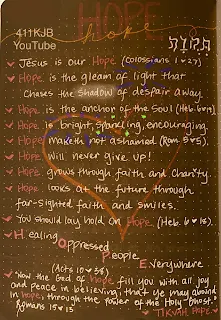 HOPE
411KJB
YouTube
hope
תִּקְוָה
Jesus is our Hope (Colossians 1♥27)
Hope is the gleam of light that
chases the shadow of despair away.
Hope is the anchor of the Soul (Heb. 6♥19)
Hope is bright, sparkling, encouraging.
Hope maketh not ashamed (Rom 5♥5).
Hope will never give up!
Hope grows through faith and Charity.
Hope looks at the future through
far-sighted faith and smiles.
You should lay hold on Hope (Heb. 6♥18).
Healing
Oppressed
People
Everywhere
(Acts 10♥38)
Now the God of Hope fill you with all joy
and peace in believing, that ye may abound
in hope, through the power of the Holy Ghost.
Romans 15♥13
TIKVAH HOPE